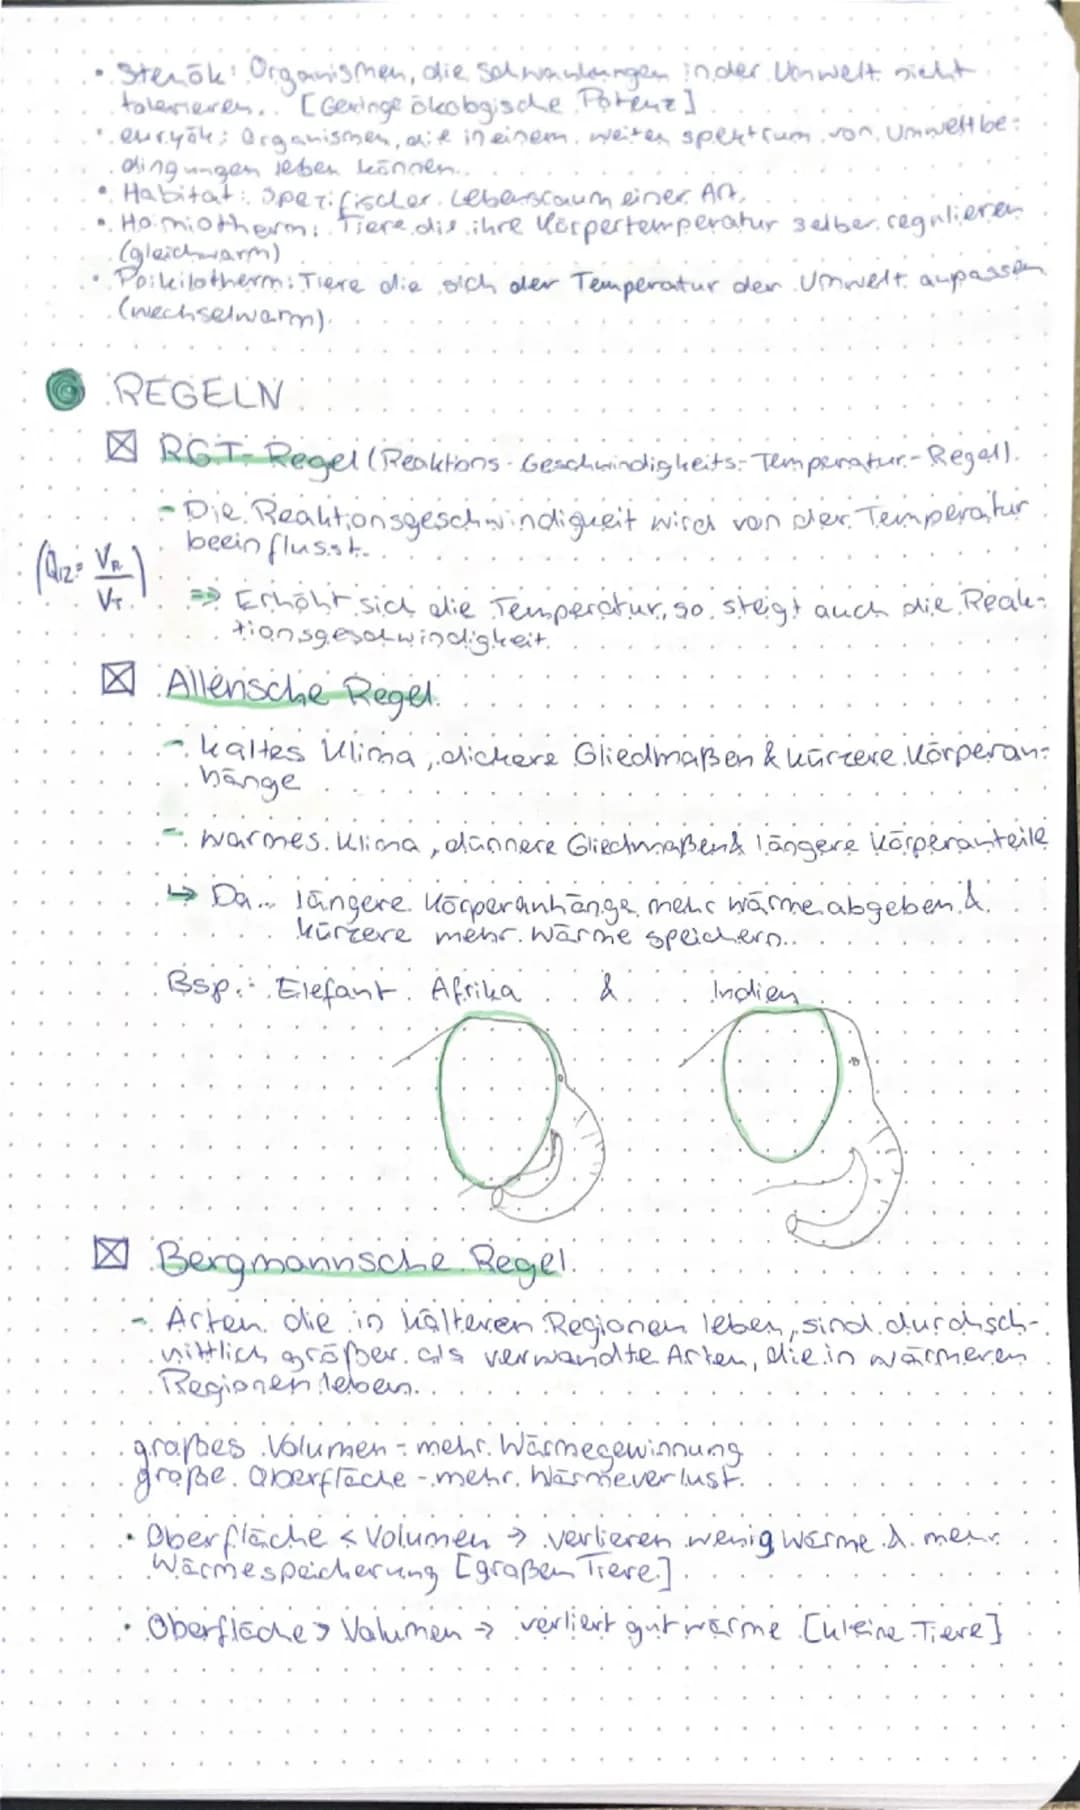 • Stenök: Organismen, die Schwankungen in der Umwelt nicht
tolerieren. [Geringe ökologische Potenz]
• euryök: Organismen, die in einem weiten spektrum von Umweltbe-
dingungen leben können.
• Habitat: Spezifischer Lebensraum einer Art.
• Homiotherm: Tiere die ihre Körpertemperatur selber regulieren
(gleichwarm)
• Poikilotherm: Tiere die sich der Temperatur der Umwelt anpassen
(wechselwarm).
REGELN
RGT-Regel (Reaktions-Geschwindigkeits-Temperatur-Regel)
- Die Reaktionsgeschwindigkeit wird von der Temperatur
beeinflusst.
(Q12= VR/VT)
=> Erhöht sich die Temperatur, so steigt auch die Reak-
tionsgeschwindigkeit.
Allensche Regel
- kaltes Klima, dickere Gliedmaßen & kürzere Körperan-
hänge
- warmes Klima, dünnere Gliedmaßen & längere Körperanteile
↳ Da... längere Körperanhänge mehr wärme abgeben &
kürzere mehr Wärme speichern.
Bsp.: Elefant Afrika & Indien
Bergmannsche Regel
- Arten die in kälteren Regionen leben, sind durchsch-
nittlich größer als verwandte Arten, die in wärmeren
Regionen leben.
großes Volumen - mehr Wärmegewinnung
große Oberfläche - mehr Wärmeverlust
• Oberfläche < Volumen → verlieren wenig wärme & mehr
Wärmespeicherung [großen Tiere]
• Oberfläche > Volumen → verliert gut wärme [kleine Tiere]